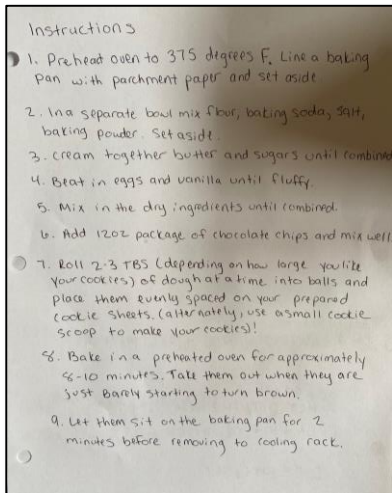 Instructions
1. Preheat oven to 375 degrees F. Line a baking
pan with parchment paper and set aside
2. In a separate bowl mix flour, baking soda, salt,
baking powder. Set aside.
3. Cream together butter and sugars until combined
4. Beat in eggs and vanilla until fluffy.
5. Mix in the dry ingredients until combined.
6. Add 12oz package of chocolate chips and mix well.
7. Roll 2-3 TBS (depending on how large you like
your cookies) of dough at a time into balls and
place them evenly spaced on your prepared
cookie sheets. (alternately, use a small cookie
scoop to make your cookies)!
8. Bake in a preheated oven for approximately
8-10 minutes. Take them out when they are
just Barely starting to turn brown.
9. Let them sit on the baking pan for 2
minutes before removing to cooling rack.